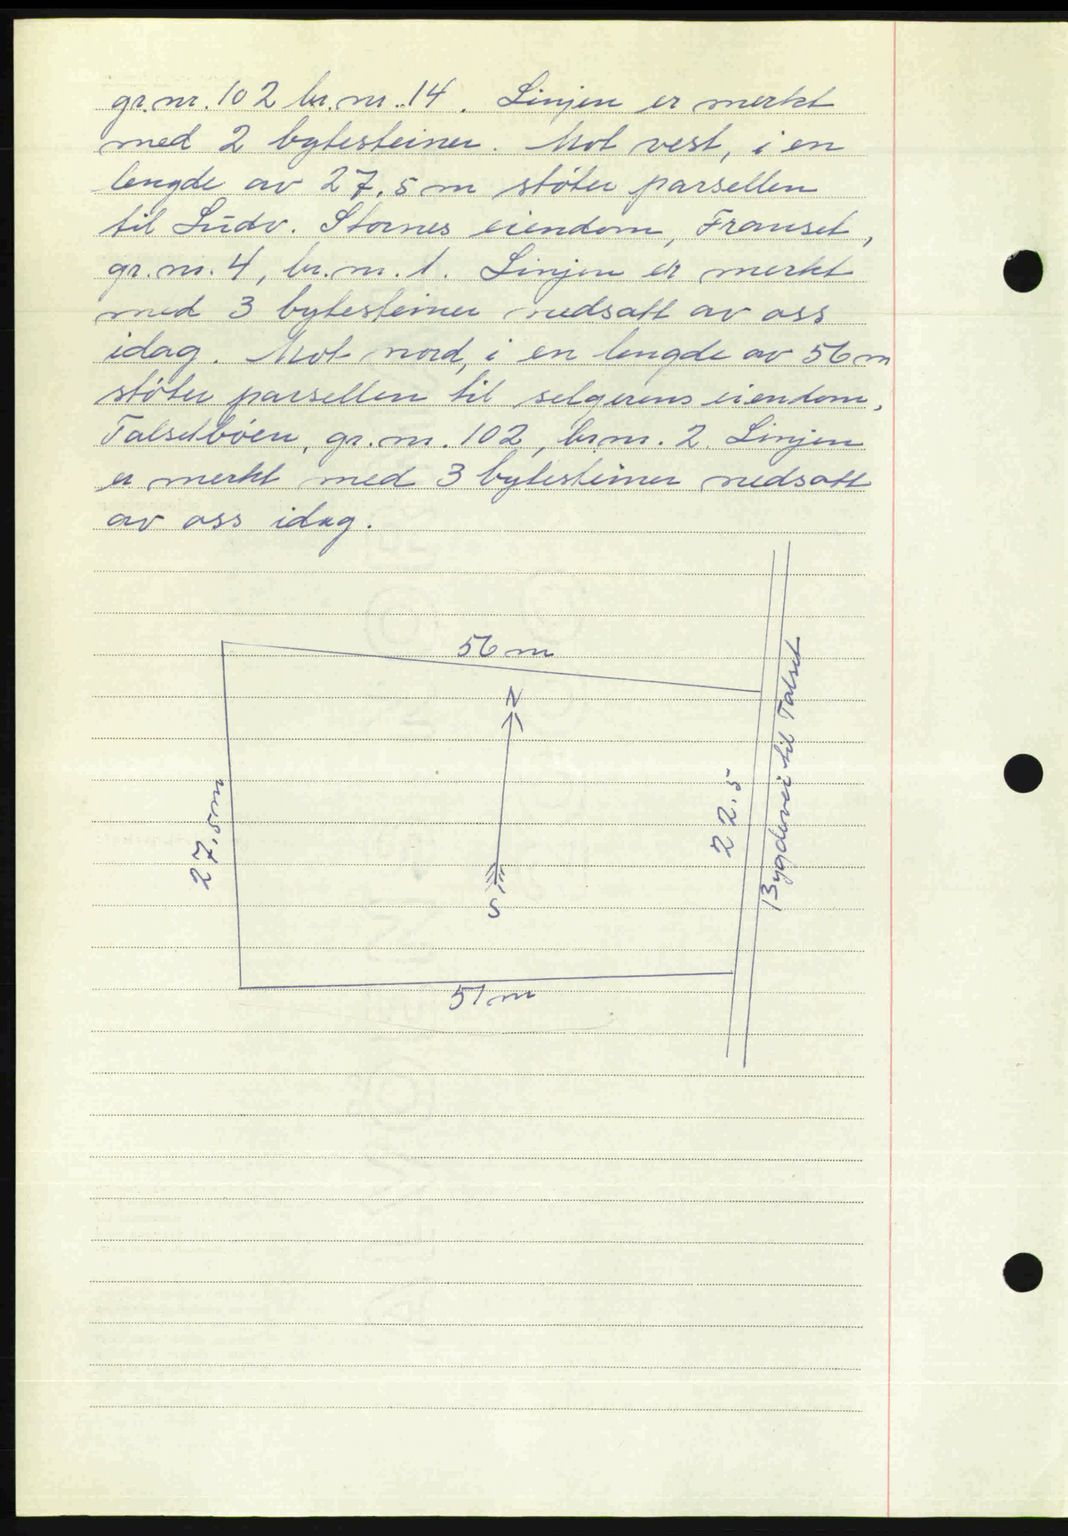 gr.nr. 102 br.nr. 14. Linjen er merkt
med 2 bytesteiner. Mot vest, i en
lengde av 27.5 m støter parsellen
til Ludv. Stornes eiendom, Franset,
gr.nr. 4, br.nr. 1. Linjen er merkt
med 3 bytesteiner nedsatt av oss
idag. Mot nord, i en lengde av 56 m
støter parsellen til selgerens eiendom,
Talsetbøen, gr.nr. 102, br.nr. 2. Linjen
er merkt med 3 bytesteiner nedsatt
av oss idag.
56 m
N
27.5 m
22.5
Bygdevei til Talset
S
51 m